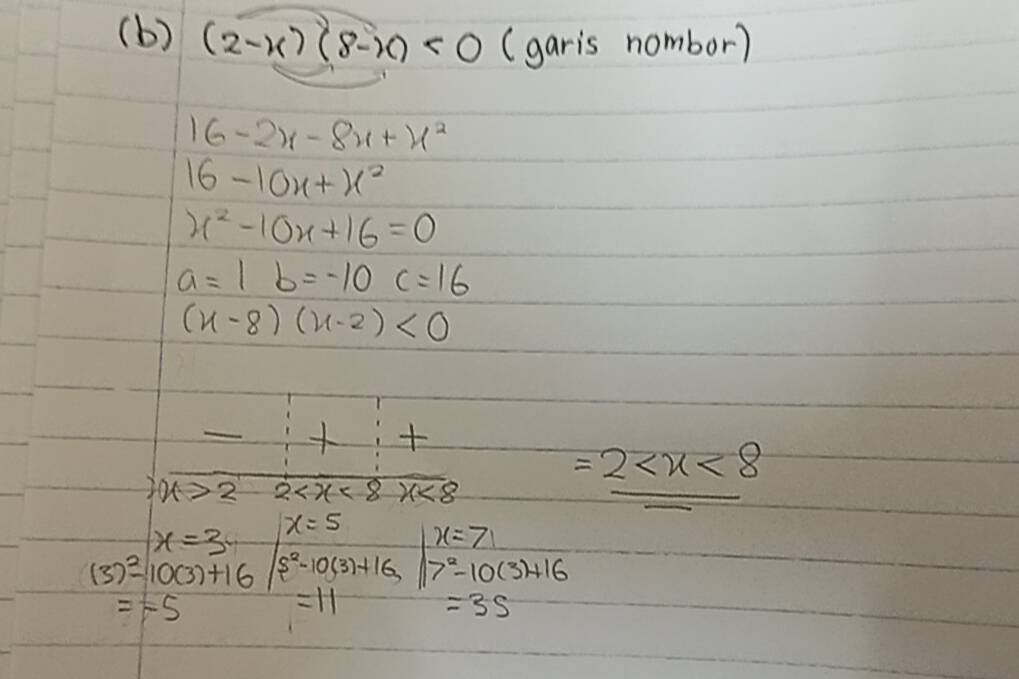 (b) (2-x)(8-x) < 0 (garis nombor)
16-2x-8x+x²
16-10x+x²
x²-10x+16=0
a=1 b=-10 c=16
(x-8)(x-2)<0
- + +
x>2 2<x<8 x<8
= 2<x<8
x=3 x=5 x=7
(3)²-10(3)+16 5²-10(3)+16 7²-10(3)+16
=-5 =11 =35